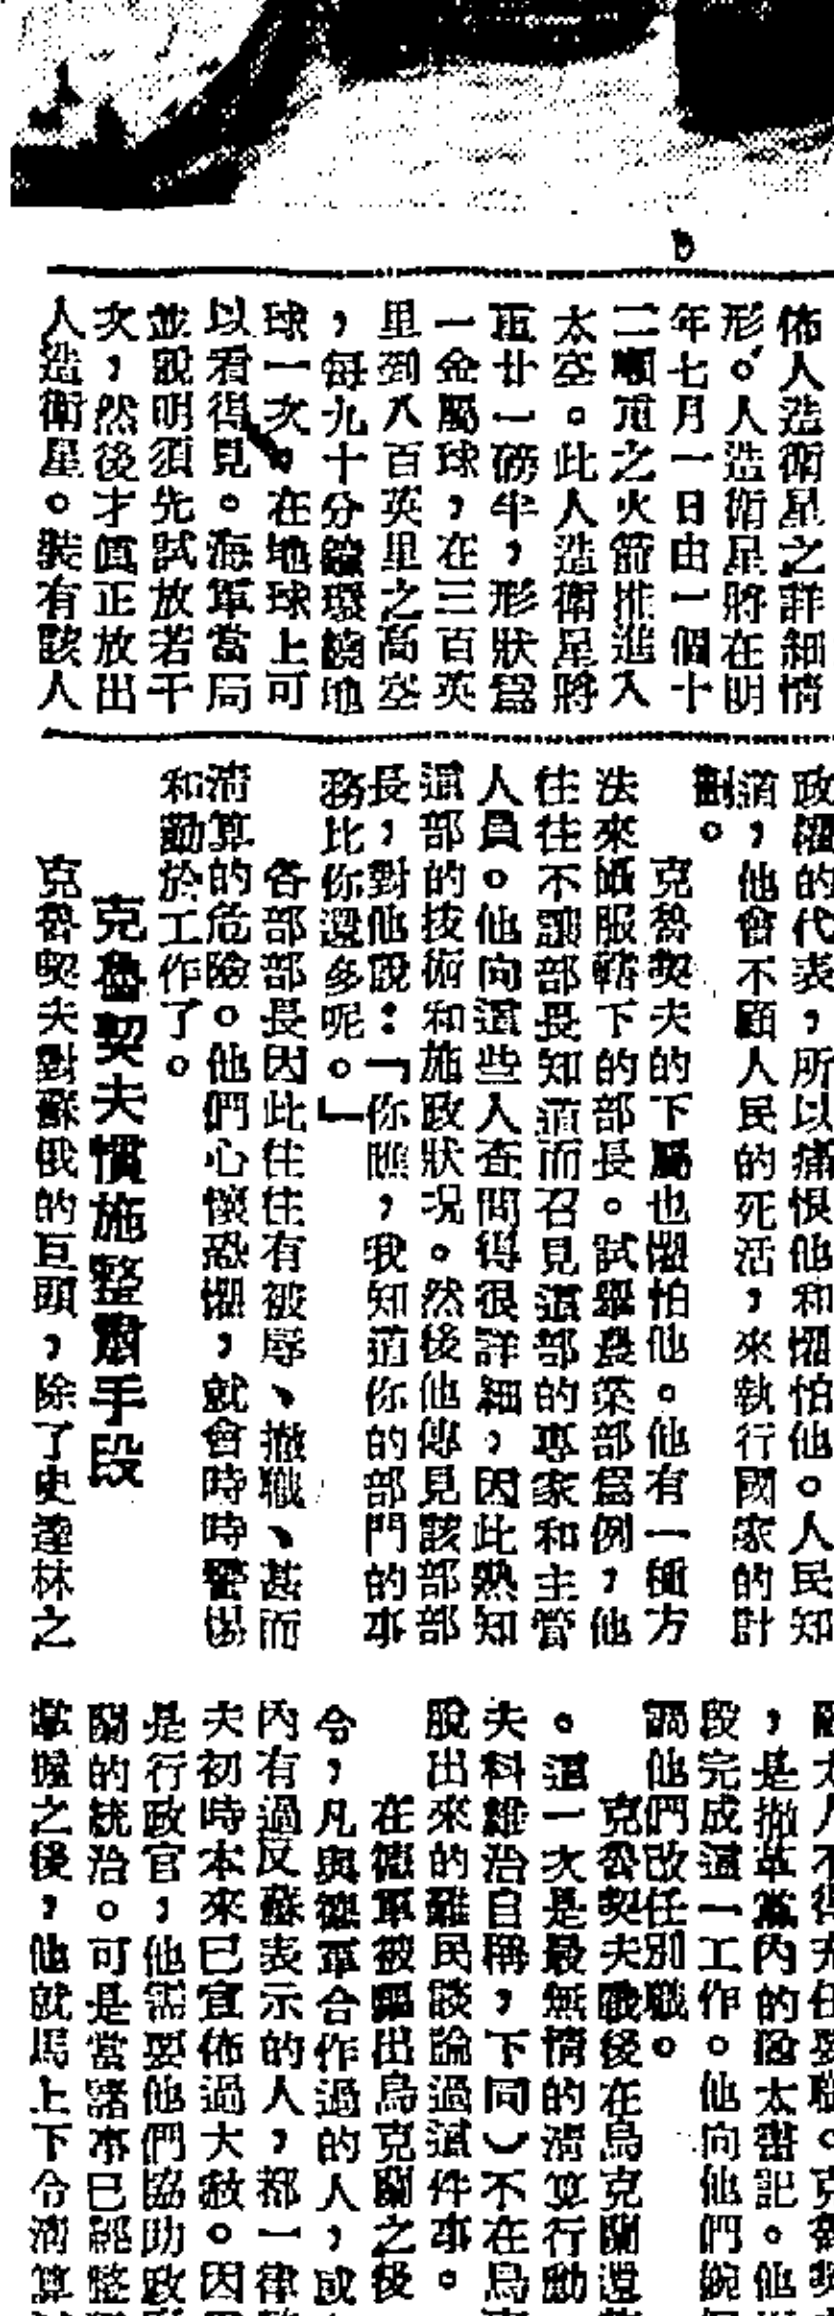 佈人造衛星之詳細情
形。人造衛星將在明
年七月一日由一個十
二噸重之火箭推進入
太空。此人造衛星將
重廿一磅半，形狀爲
一金屬球，在三百英
里到八百英里之高空
，每九十分鐘環繞地
球一次。在地球上可
以看得見。海軍當局
並說明須先試放若干
次，然後才眞正放出
人造衛星。裝有該人
政權的代表，所以痛恨他和懼怕他。人民知
道，他會不顧人民的死活，來執行國家的計
劃。
克魯契夫的下屬也懼怕他。他有一種方
法來懾服轄下的部長。試舉農業部爲例，他
往往不讓部長知道而召見這部的專家和主管
人員。他向這些人查問得很詳細，因此熟知
這部的技術和施政狀况。然後他傳見該部部
長，對他說：「你瞧，我知道你的部門的事
務比你還多呢。」
各部部長因此往往有被辱、撤職、甚而
清算的危險。他們心懷恐懼，就會時時警惕
和勤於工作了。
克魯契夫慣施整肅手段
克魯契夫對蘇俄的巨頭，除了史達林之
，是撤革黨內的猶太書記。他
段完成這一工作。他向他們
他們改任別職。
克魯契夫戰後在烏克蘭還
。這一次是最無情的清算行動
夫科維治自稱，下同）不在烏
脫出來的難民談論過這件事。
在德軍被驅出烏克蘭之後
令，凡與德軍合作過的人，或
內有過反蘇表示的人，都一律
夫初時本來已宣佈過大赦。因
是行政官，他需要他們協助政
關的統治。可是當諸事已經整
掌握之後，他就馬上下令清算